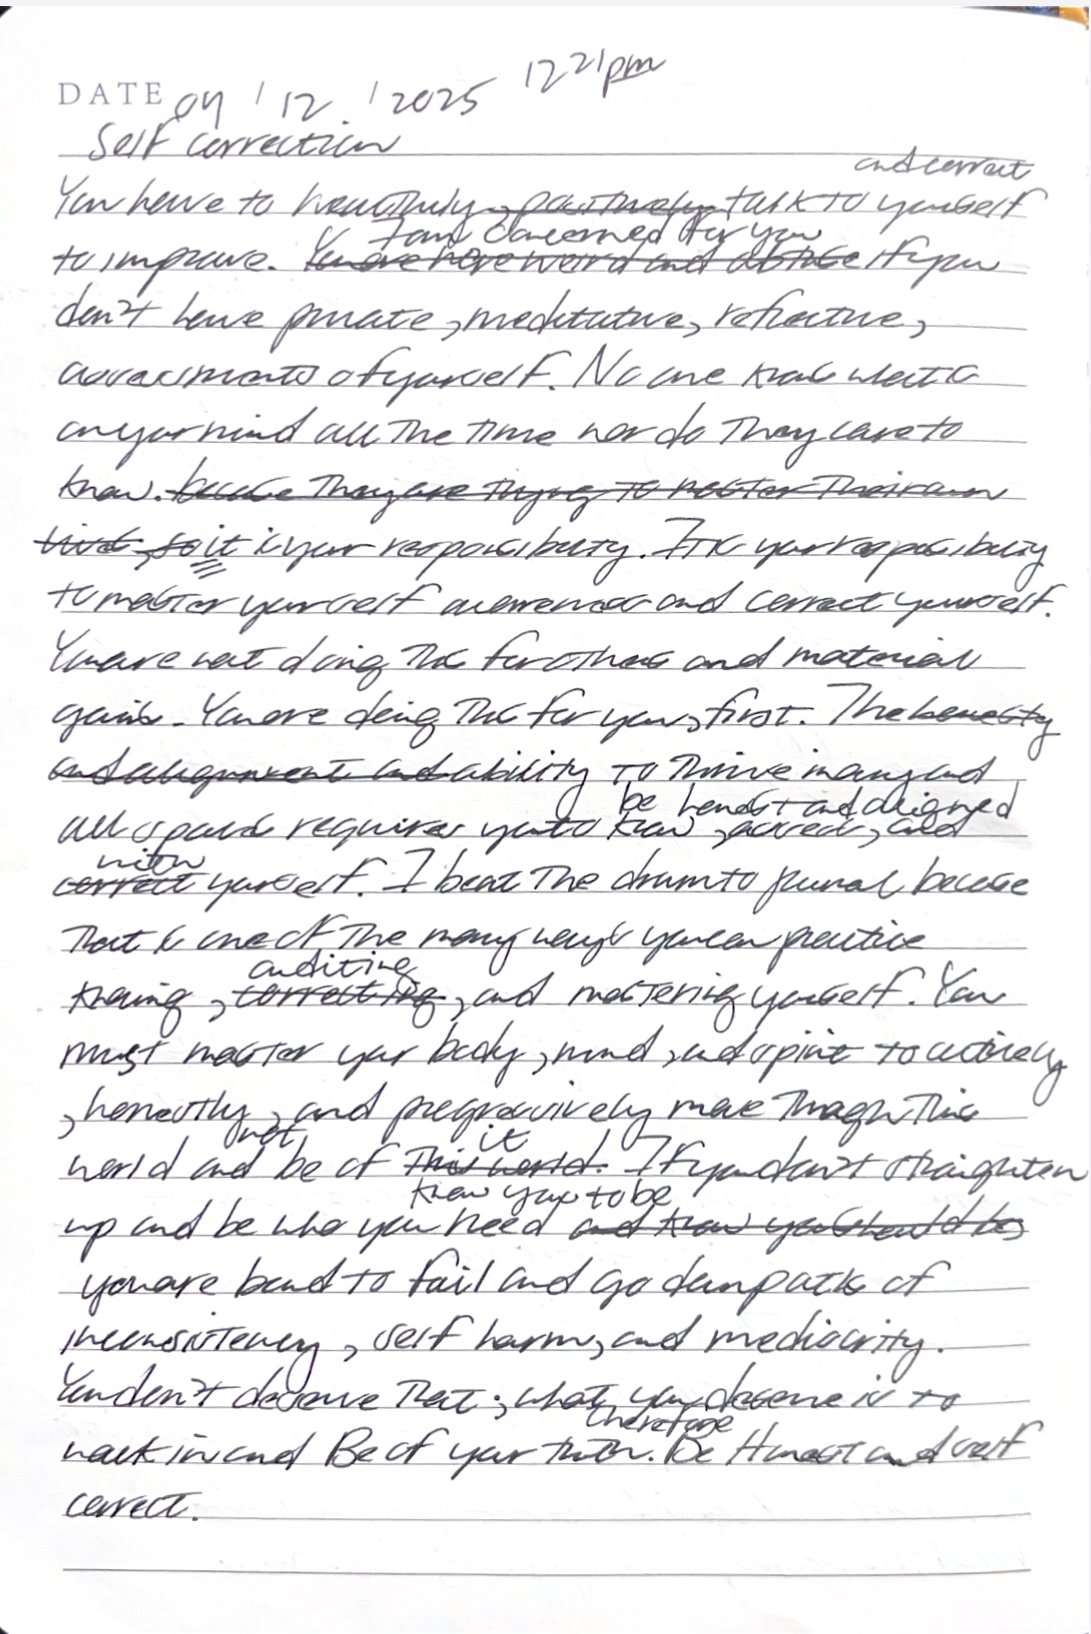 DATE 09 / 12 / 2025 12 21pm
Self correction
and correct
You have to healthily, positively talk to yourself
I am concerned for you
to improve. You are here weird and obtuse if you
don't have private, meditative, reflective,
assessments of yourself. No one knows what is
on your mind all the time nor do they care to
know. because they are trying to master their own
lives, so it is your responsibility. It is your responsibility
to master yourself awareness and correct yourself.
You are not doing this for others and material
gains. You are doing this for you, first. The honesty
and alignment and ability to thrive in any and
be honest and aligned
all spaces requires you to know, assess, and
with
correct yourself. I beat the drum to journal because
that is one of the many ways you can practice
auditing
knowing, correcting, and mastering yourself. You
must master your body, mind, and spirit to actively
, honestly, and progressively move through this
not it
world and be of this world. If you don't straighten
know you to be
up and be who you need and know you should be,
you are bound to fail and go down path of
inconsistency, self harm, and mediocrity.
You don't deserve that; what you deserve is to
therefore
walk in and Be of your truth. Be Honest and self
correct.